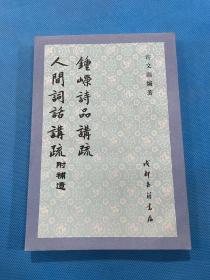 許文雨編著
鍾嶸詩品講疏
人間詞話講疏附補遺
成都古籍書店